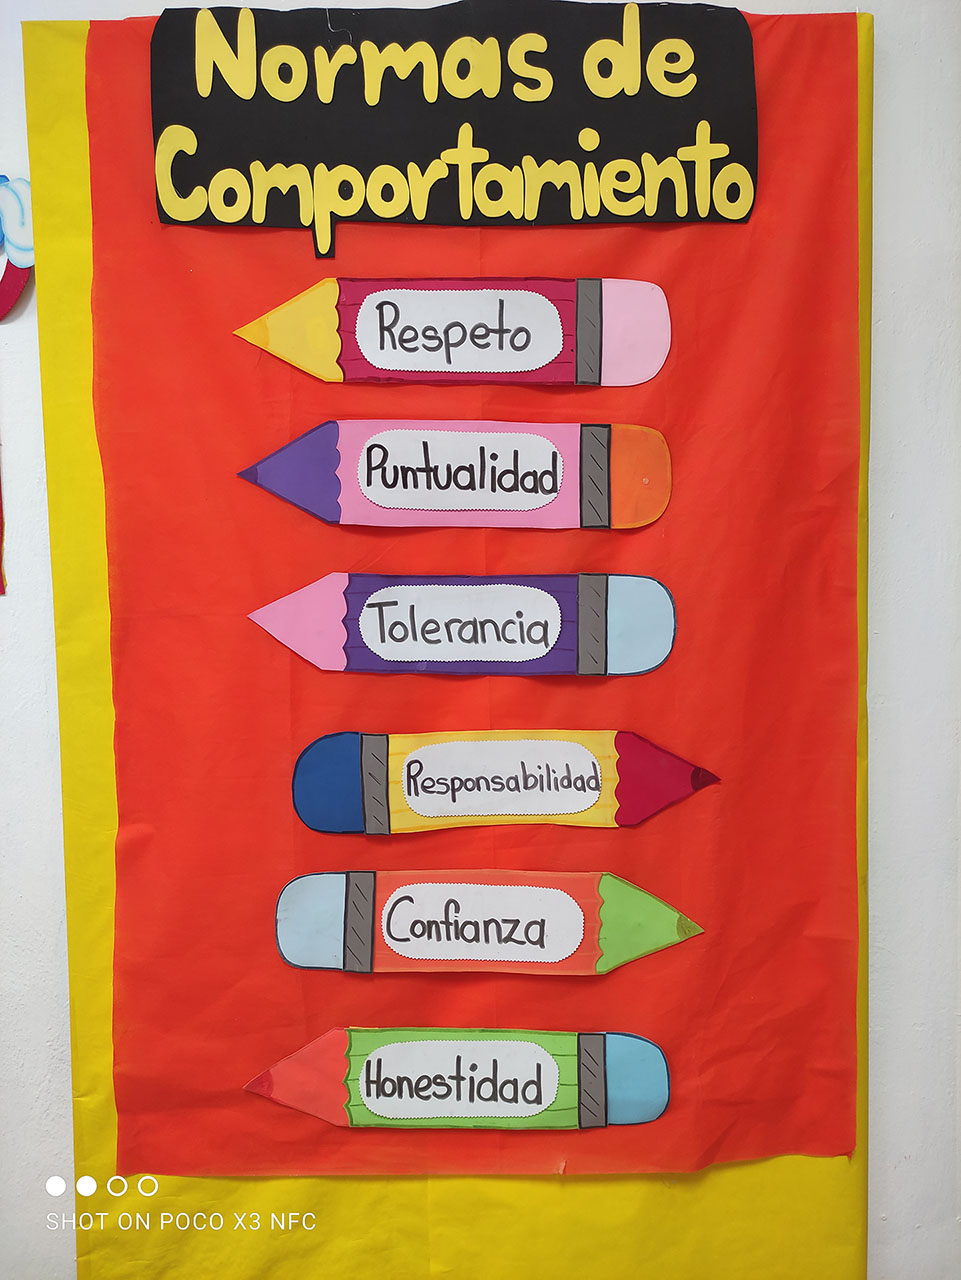 Normas de
Comportamiento
Respeto
Puntualidad
Tolerancia
Responsabilidad
Confianza
Honestidad
SHOT ON POCO X3 NFC